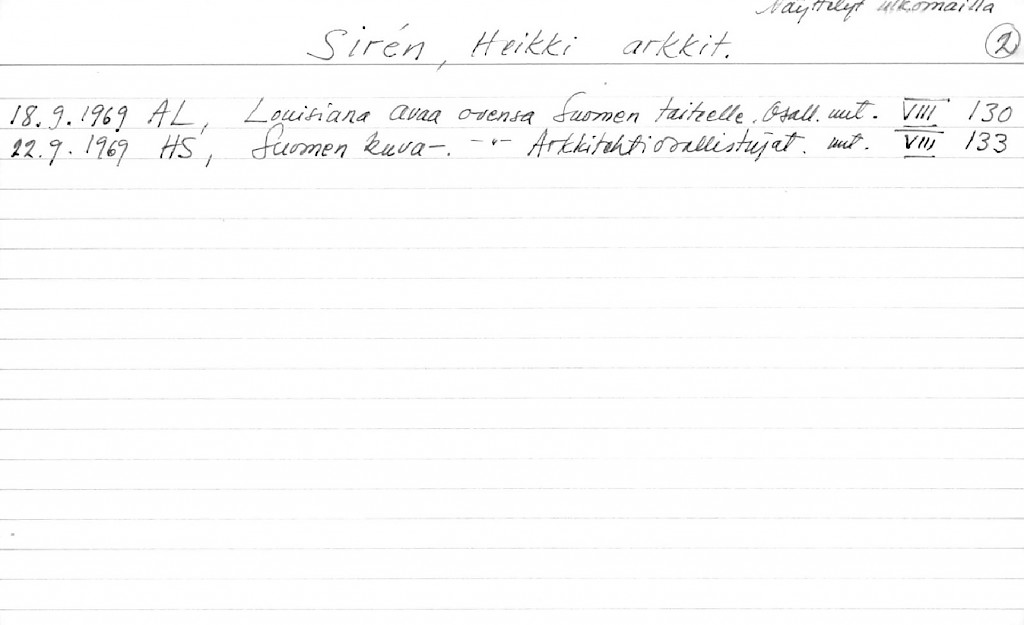 Näyttelyt ulkomailla
Sirén, Heikki arkkit. 2
18.9.1969 AL, Louisiana avaa ovensa Suomen taiteelle. Osall. uut. VIII 130
22.9.1969 HS, Suomen kuva-. -"- Arkkitehtiosallistujat. uut. VIII 133